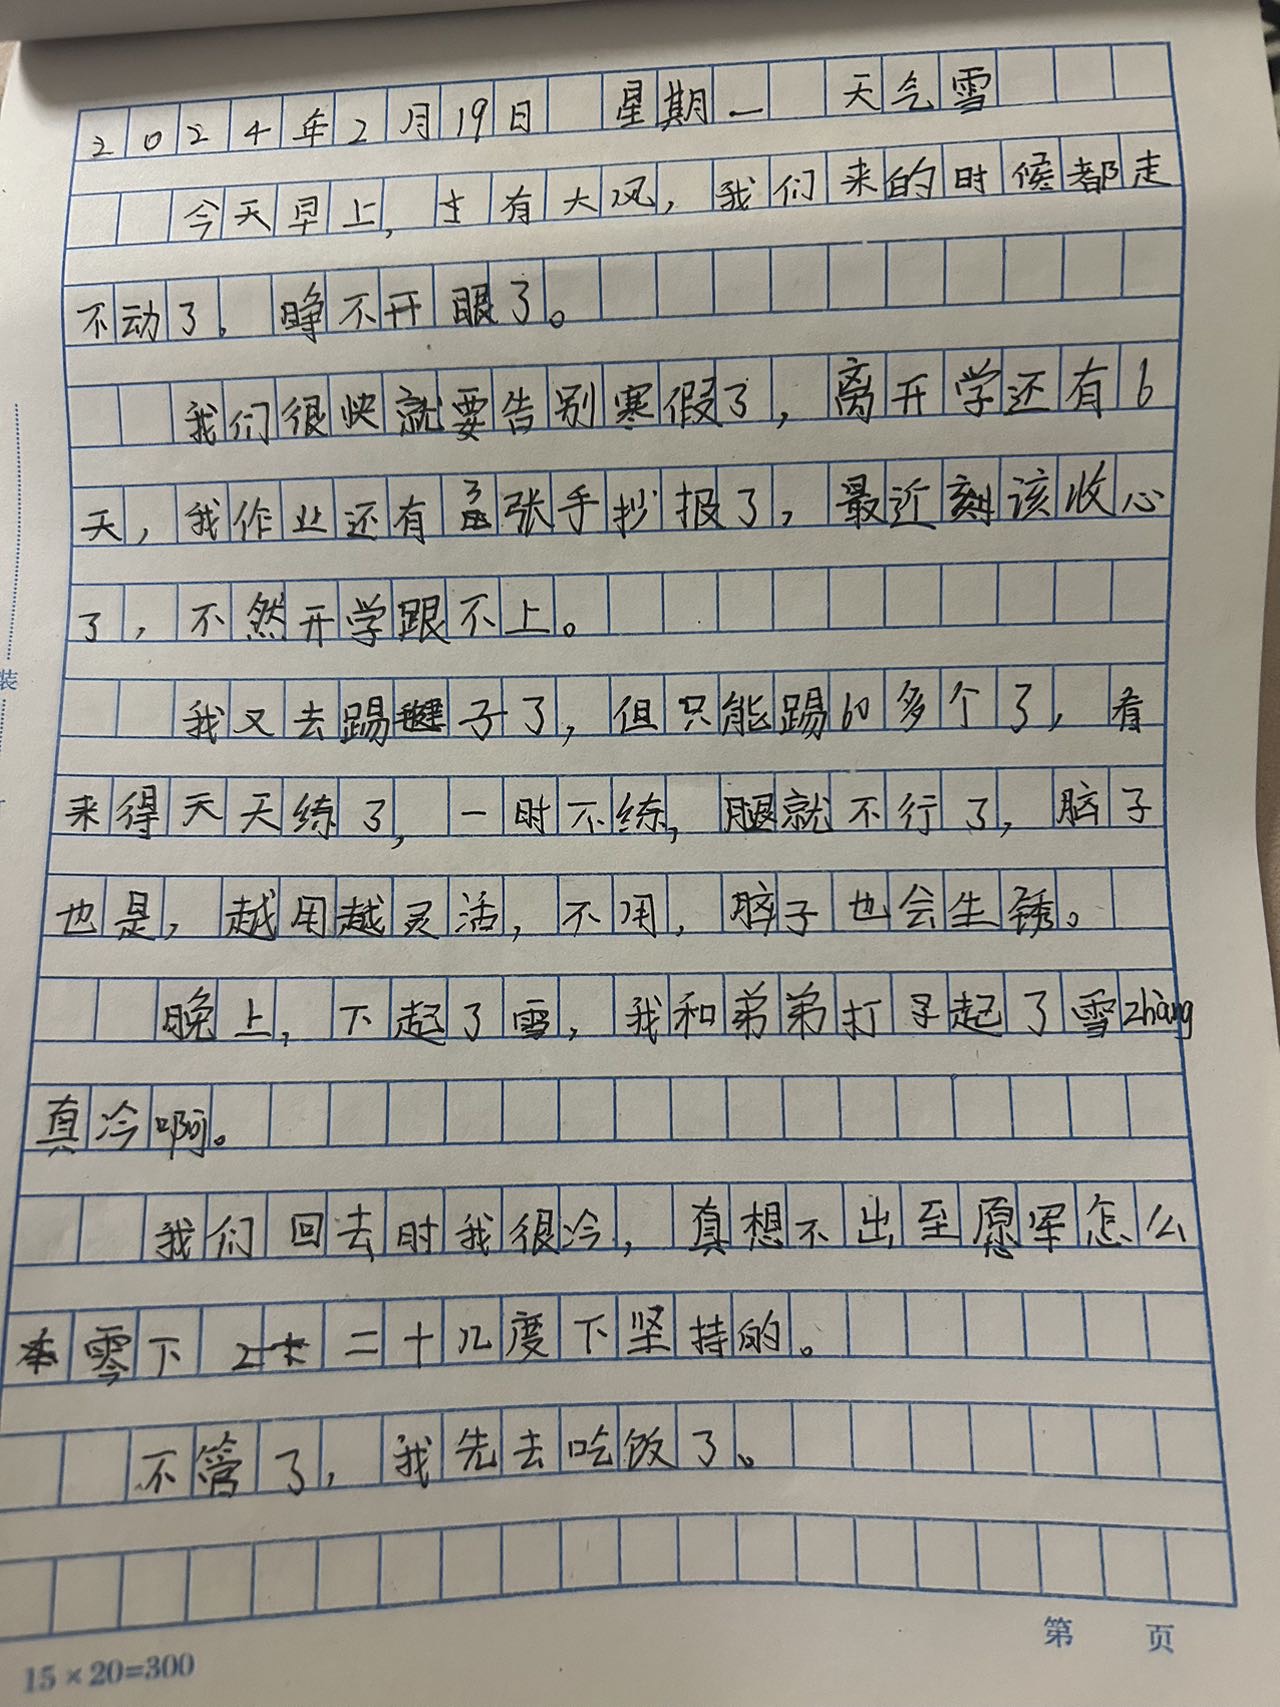 2024年2月19日 星期一 天气雪
今天早上,有大风,我们来的时候都走
不动了,睁不开眼了。
我们很快就要告别寒假了,离开学还有6
天,我作业还有张手抄报了,最近刻该收心
了,不然开学跟不上。
我又去踢毽子了,但只能踢60多个了,看
来得天天练了,一时不练,腿就不行了,脑子
也是,越用越灵活,不用,脑子也会生锈。
晚上,下起了雪,我和弟弟打起了雪zhàng
真冷啊。
我们回去时我很冷,真想不出志愿军怎么
零下二十几度下坚持的。
不管了,我先去吃饭了。
第 页
15×20=300
装